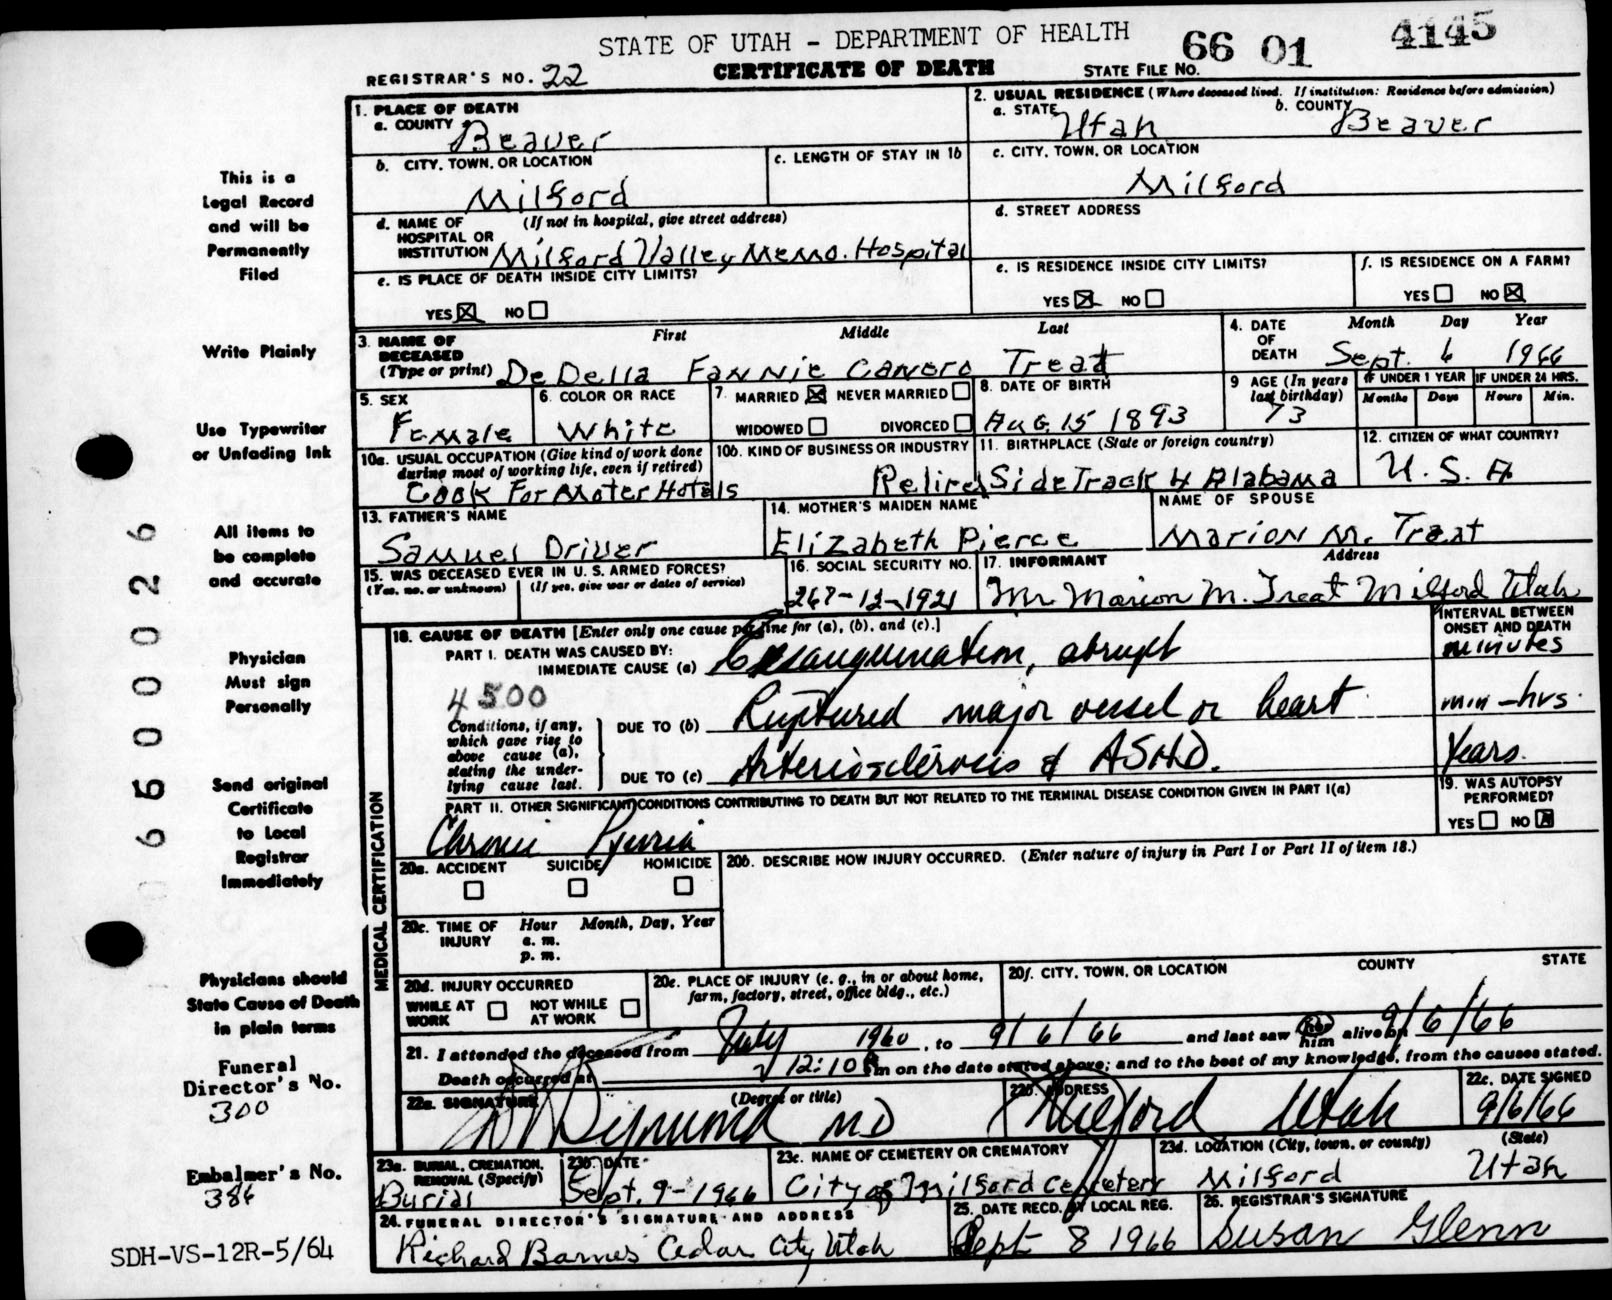 STATE OF UTAH - DEPARTMENT OF HEALTH
66 01 4145
CERTIFICATE OF DEATH
STATE FILE NO.
REGISTRAR'S NO. 22
1. PLACE OF DEATH
a. COUNTY Beaver
2. USUAL RESIDENCE (Where deceased lived. If institution: Residence before admission)
a. STATE Utah b. COUNTY Beaver
b. CITY, TOWN, OR LOCATION Milford
c. LENGTH OF STAY IN 1b
c. CITY, TOWN, OR LOCATION Milford
d. NAME OF HOSPITAL OR INSTITUTION (If not in hospital, give street address)
Milford Valley Memo. Hospital
d. STREET ADDRESS
e. IS PLACE OF DEATH INSIDE CITY LIMITS?
YES ☒ NO ☐
e. IS RESIDENCE INSIDE CITY LIMITS?
YES ☒ NO ☐
f. IS RESIDENCE ON A FARM?
YES ☐ NO ☒
3. NAME OF DECEASED (Type or print) First Middle Last
DeDella Fannie Canero Treat
4. DATE OF DEATH Month Day Year
Sept. 6 1966
5. SEX Female
6. COLOR OR RACE White
7. MARRIED ☒ NEVER MARRIED ☐
WIDOWED ☐ DIVORCED ☐
8. DATE OF BIRTH Aug. 15 1893
9 AGE (In years last birthday) 73
IF UNDER 1 YEAR Months Days
IF UNDER 24 HRS. Hours Min.
10a. USUAL OCCUPATION (Give kind of work done during most of working life, even if retired)
Cook For Moter Hotels
10b. KIND OF BUSINESS OR INDUSTRY
11. BIRTHPLACE (State or foreign country)
Side Track 4 Alabama
12. CITIZEN OF WHAT COUNTRY?
U. S. A
13. FATHER'S NAME
Samuel Driver
14. MOTHER'S MAIDEN NAME
Elizabeth Pierce
NAME OF SPOUSE
Marion M. Treat
15. WAS DECEASED EVER IN U. S. ARMED FORCES?
(Yes, no, or unknown) (If yes, give war or dates of service)
16. SOCIAL SECURITY NO.
267-12-1921
17. INFORMANT Address
Mr Marion M. Treat Milford Utah
18. CAUSE OF DEATH [Enter only one cause per line for (a), (b), and (c).]
INTERVAL BETWEEN ONSET AND DEATH
PART I. DEATH WAS CAUSED BY:
IMMEDIATE CAUSE (a) Exsanguination, abrupt minutes
4500
Conditions, if any, which gave rise to above cause (a), stating the underlying cause last.
DUE TO (b) Ruptured major vessel or heart min-hrs.
DUE TO (c) Arteriosclerosis & ASHD. Years.
PART II. OTHER SIGNIFICANT CONDITIONS CONTRIBUTING TO DEATH BUT NOT RELATED TO THE TERMINAL DISEASE CONDITION GIVEN IN PART I(a)
Chronic Pyuria
19. WAS AUTOPSY PERFORMED?
YES ☐ NO ☒
MEDICAL CERTIFICATION
20a. ACCIDENT ☐ SUICIDE ☐ HOMICIDE ☐
20b. DESCRIBE HOW INJURY OCCURRED. (Enter nature of injury in Part I or Part II of item 18.)
20c. TIME OF INJURY Hour a. m. p. m. Month, Day, Year
20d. INJURY OCCURRED
WHILE AT WORK ☐ NOT WHILE AT WORK ☐
20e. PLACE OF INJURY (e. g., in or about home, farm, factory, street, office bldg., etc.)
20f. CITY, TOWN, OR LOCATION COUNTY STATE
21. I attended the deceased from July 1960, to 9/6/66 and last saw her him alive on 9/6/66
Death occurred at 12:10 A m on the date stated above; and to the best of my knowledge, from the causes stated.
22a. SIGNATURE (Degree or title)
MD
22b. ADDRESS
Milford Utah
22c. DATE SIGNED
9/6/66
23a. BURIAL, CREMATION, REMOVAL (Specify)
Burial
23b. DATE
Sept. 9-1966
23c. NAME OF CEMETERY OR CREMATORY
City of Milford Cemetery
23d. LOCATION (City, town, or county) (State)
Milford Utah
24. FUNERAL DIRECTOR'S SIGNATURE AND ADDRESS
Richard Barnes Cedar City Utah
25. DATE RECD. BY LOCAL REG.
Sept 8 1966
26. REGISTRAR'S SIGNATURE
Susan Glenn
This is a
Legal Record
and will be
Permanently
Filed
Write Plainly
Use Typewriter
or Unfading Ink
All items to
be complete
and accurate
Physician
Must sign
Personally
Send original
Certificate
to Local
Registrar
Immediately
Physicians should
State Cause of Death
in plain terms
Funeral
Director's No.
300
Embalmer's No.
386
SDH-VS-12R-5/64
6500026